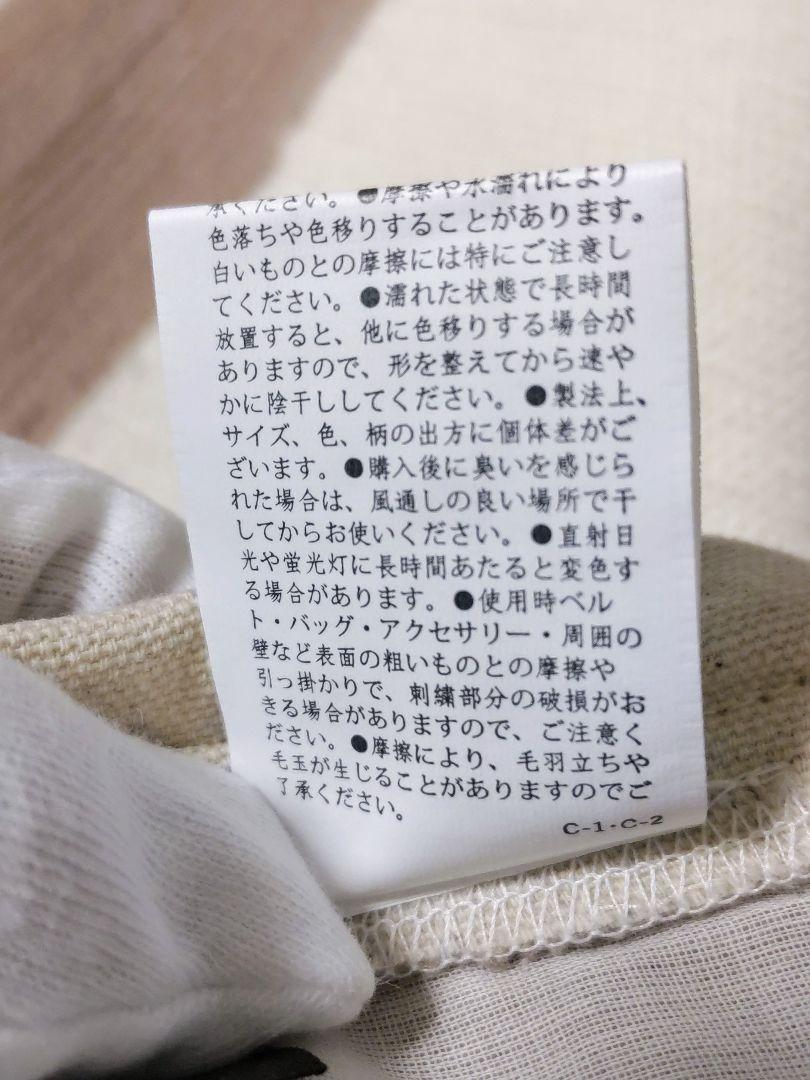 承ください。●摩擦や水濡れにより
色落ちや色移りすることがあります。
白いものとの摩擦には特にご注意し
てください。●濡れた状態で長時間
放置すると、他に色移りする場合が
ありますので、形を整えてから速や
かに陰干ししてください。●製法上、
サイズ、色、柄の出方に個体差がご
ざいます。●購入後に臭いを感じら
れた場合は、風通しの良い場所で干
してからお使いください。●直射日
光や蛍光灯に長時間あたると変色す
る場合があります。●使用時ベル
ト・バッグ・アクセサリー・周囲の
壁など表面の粗いものとの摩擦や
引っ掛かりで、刺繍部分の破損がお
きる場合がありますので、ご注意く
ださい。●摩擦により、毛羽立ちや
毛玉が生じることがありますのでご
了承ください。
C-1・C-2